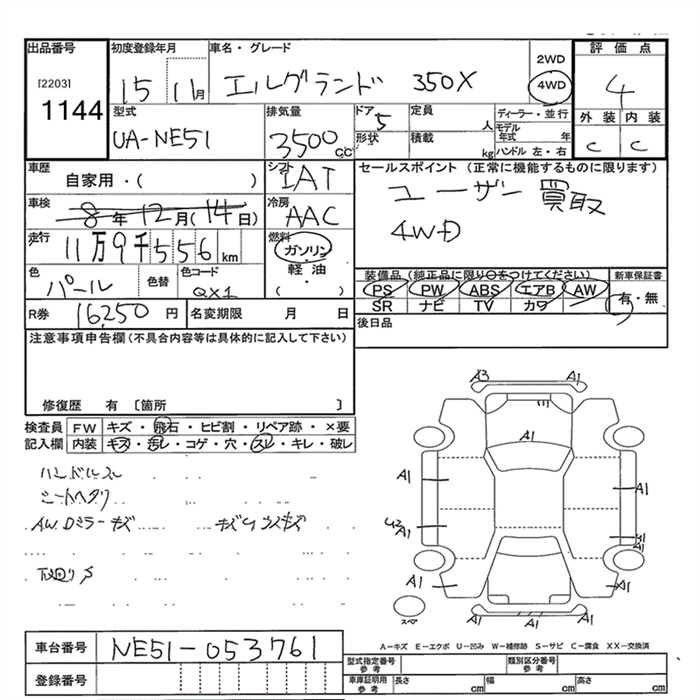 出品番号
[2203]
1144
初度登録年月
15 11月
車名・グレード
エルグランド 350X
2WD
4WD
評価点
4
外装 内装
C C
型式
UA-NE51
排気量
3500cc
ドア
5
形状
定員
人
積載
kg
ディーラー・並行
モデル年式 年
ハンドル 左・右
車歴
自家用・( )
シフト
IAT
セールスポイント (正常に機能するものに限ります)
ユーザー買取
4WD
車検
8年12月(14日)
冷房
AAC
走行
11万9千556km
燃料
ガソリン・軽油・( )
色
パール
色替
色コード
QX1
装備品(純正品に限り○をつけてください)
PS PW ABS エアB AW
SR ナビ TV カワ
新車保証書
有・無
R券 16250円
名変期限 月 日
後日品
注意事項申告欄(不具合内容等は具体的に記入して下さい)
修復歴 有 〔箇所 〕
検査員記入欄
FW キズ・飛石・ヒビ割・リペア跡・×要
内装 キズ・汚レ・コゲ・穴・スレ・キレ・破レ
ハンドルスレ
シートヘタリ
AW Dミラーキズ
下廻りサ
A3 A1
A1
A1 A1
A1
A1
A1 A1
A1 A1
スペア
A-キズ E-エクボ U-凹み W-補修跡 S-サビ C-腐食 XX-交換済
車台番号 NE51-053761
登録番号
型式指定番号 参考
類別区分番号 参考
車庫証明用 参考
長さ cm 幅 cm 高さ cm